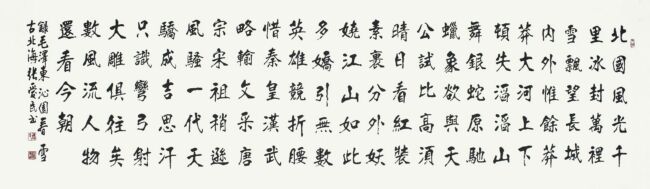 北國風光千
里冰封萬裡
雪飄望長城
内外惟餘莽
莽大河上下
頓失滔滔山
舞銀蛇原馳
蠟象欲與天
公試比高須
晴日看紅裝
素裹分外妖
嬈江山如此
多嬌引無數
英雄競折腰
惜秦皇漢武
略輸文采唐
宗宋祖稍遜
風騷一代天
驕成吉思汗
只識彎弓射
大雕俱往矣
數風流人物
還看今朝
錄毛澤東沁園春雪
古北海張愛民书